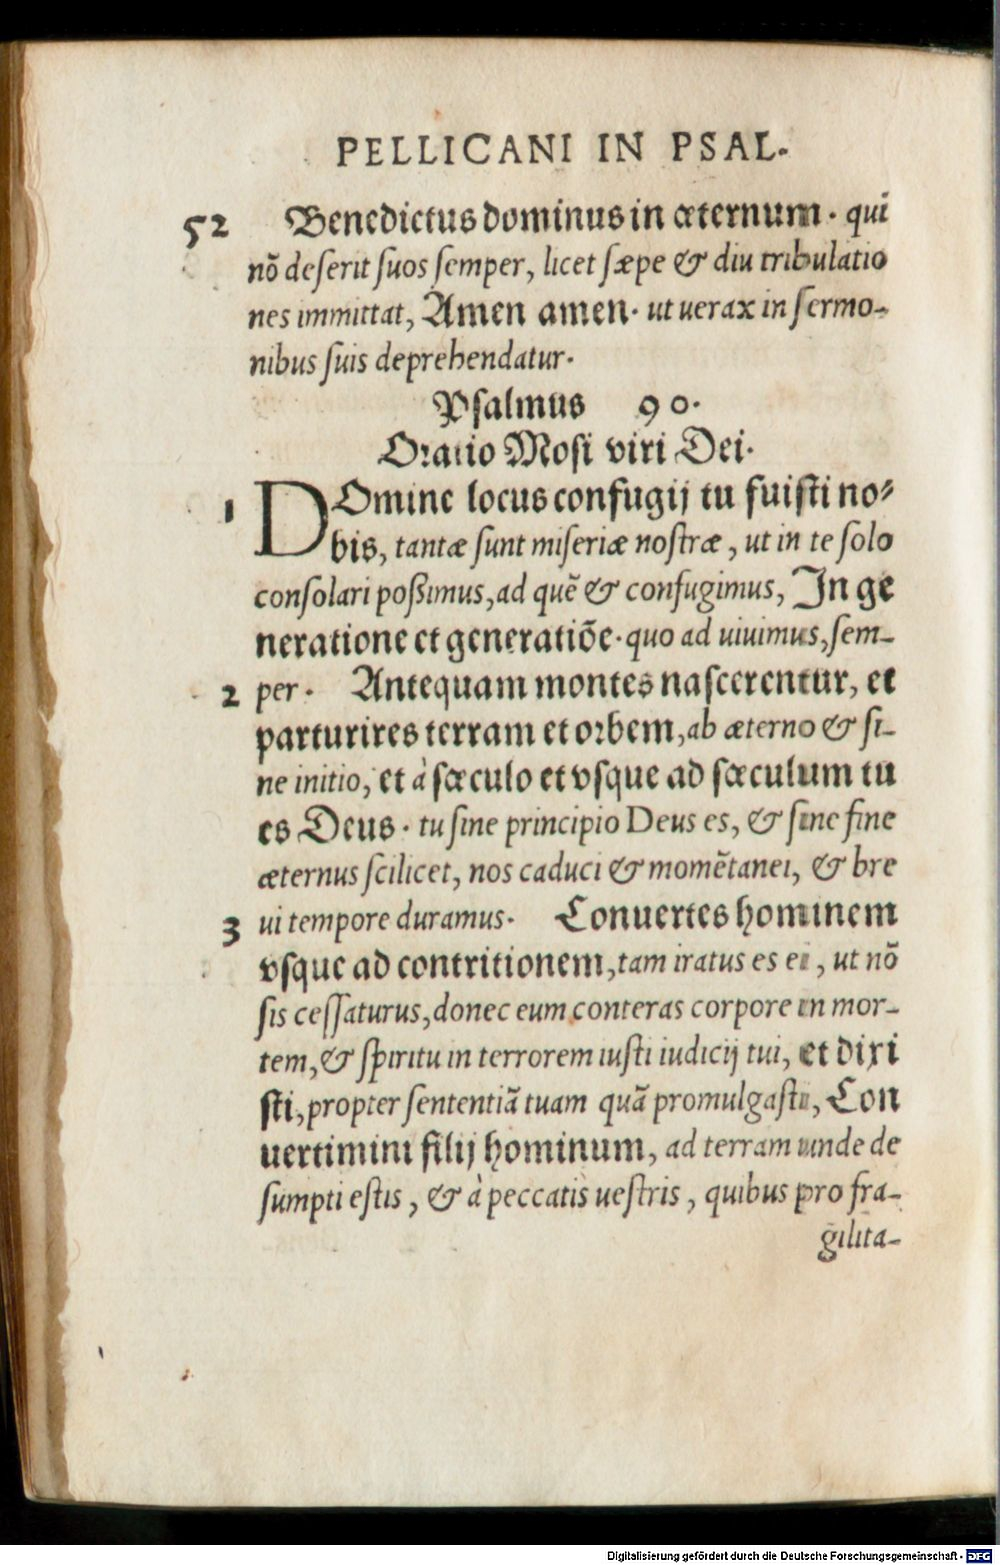 PELLICANI IN PSAL.
52 Benedictus dominus in æternum. qui
nõ deserit suos semper, licet sæpe & diu tribulatio
nes immittat, Amen amen. ut uerax in sermo-
nibus suis deprehendatur.
Psalmus 90.
Oratio Mosi viri Dei.
1 DOmine locus confugij tu fuisti no-
bis, tantæ sunt miseriæ nostræ, ut in te solo
consolari possimus, ad quẽ & confugimus, In ge
neratione et generatiõe. quo ad uiuimus, sem-
2 per. Antequam montes nascerentur, et
parturires terram et orbem, ab æterno & si-
ne initio, et à sæculo et vsque ad sæculum tu
es Deus. tu sine principio Deus es, & sine fine
æternus scilicet, nos caduci & momẽtanei, & bre
3 ui tempore duramus. Conuertes hominem
vsque ad contritionem, tam iratus es ei, ut nõ
sis cessaturus, donec eum conteras corpore in mor-
tem, & spiritu in terrorem iusti iudicij tui, et dixi
sti, propter sententiã tuam quã promulgasti, Con
uertimini filij hominum, ad terram unde de
sumpti estis, & à peccatis uestris, quibus pro fra-
gilita-
Digitalisierung gefördert durch die Deutsche Forschungsgemeinschaft - DFG